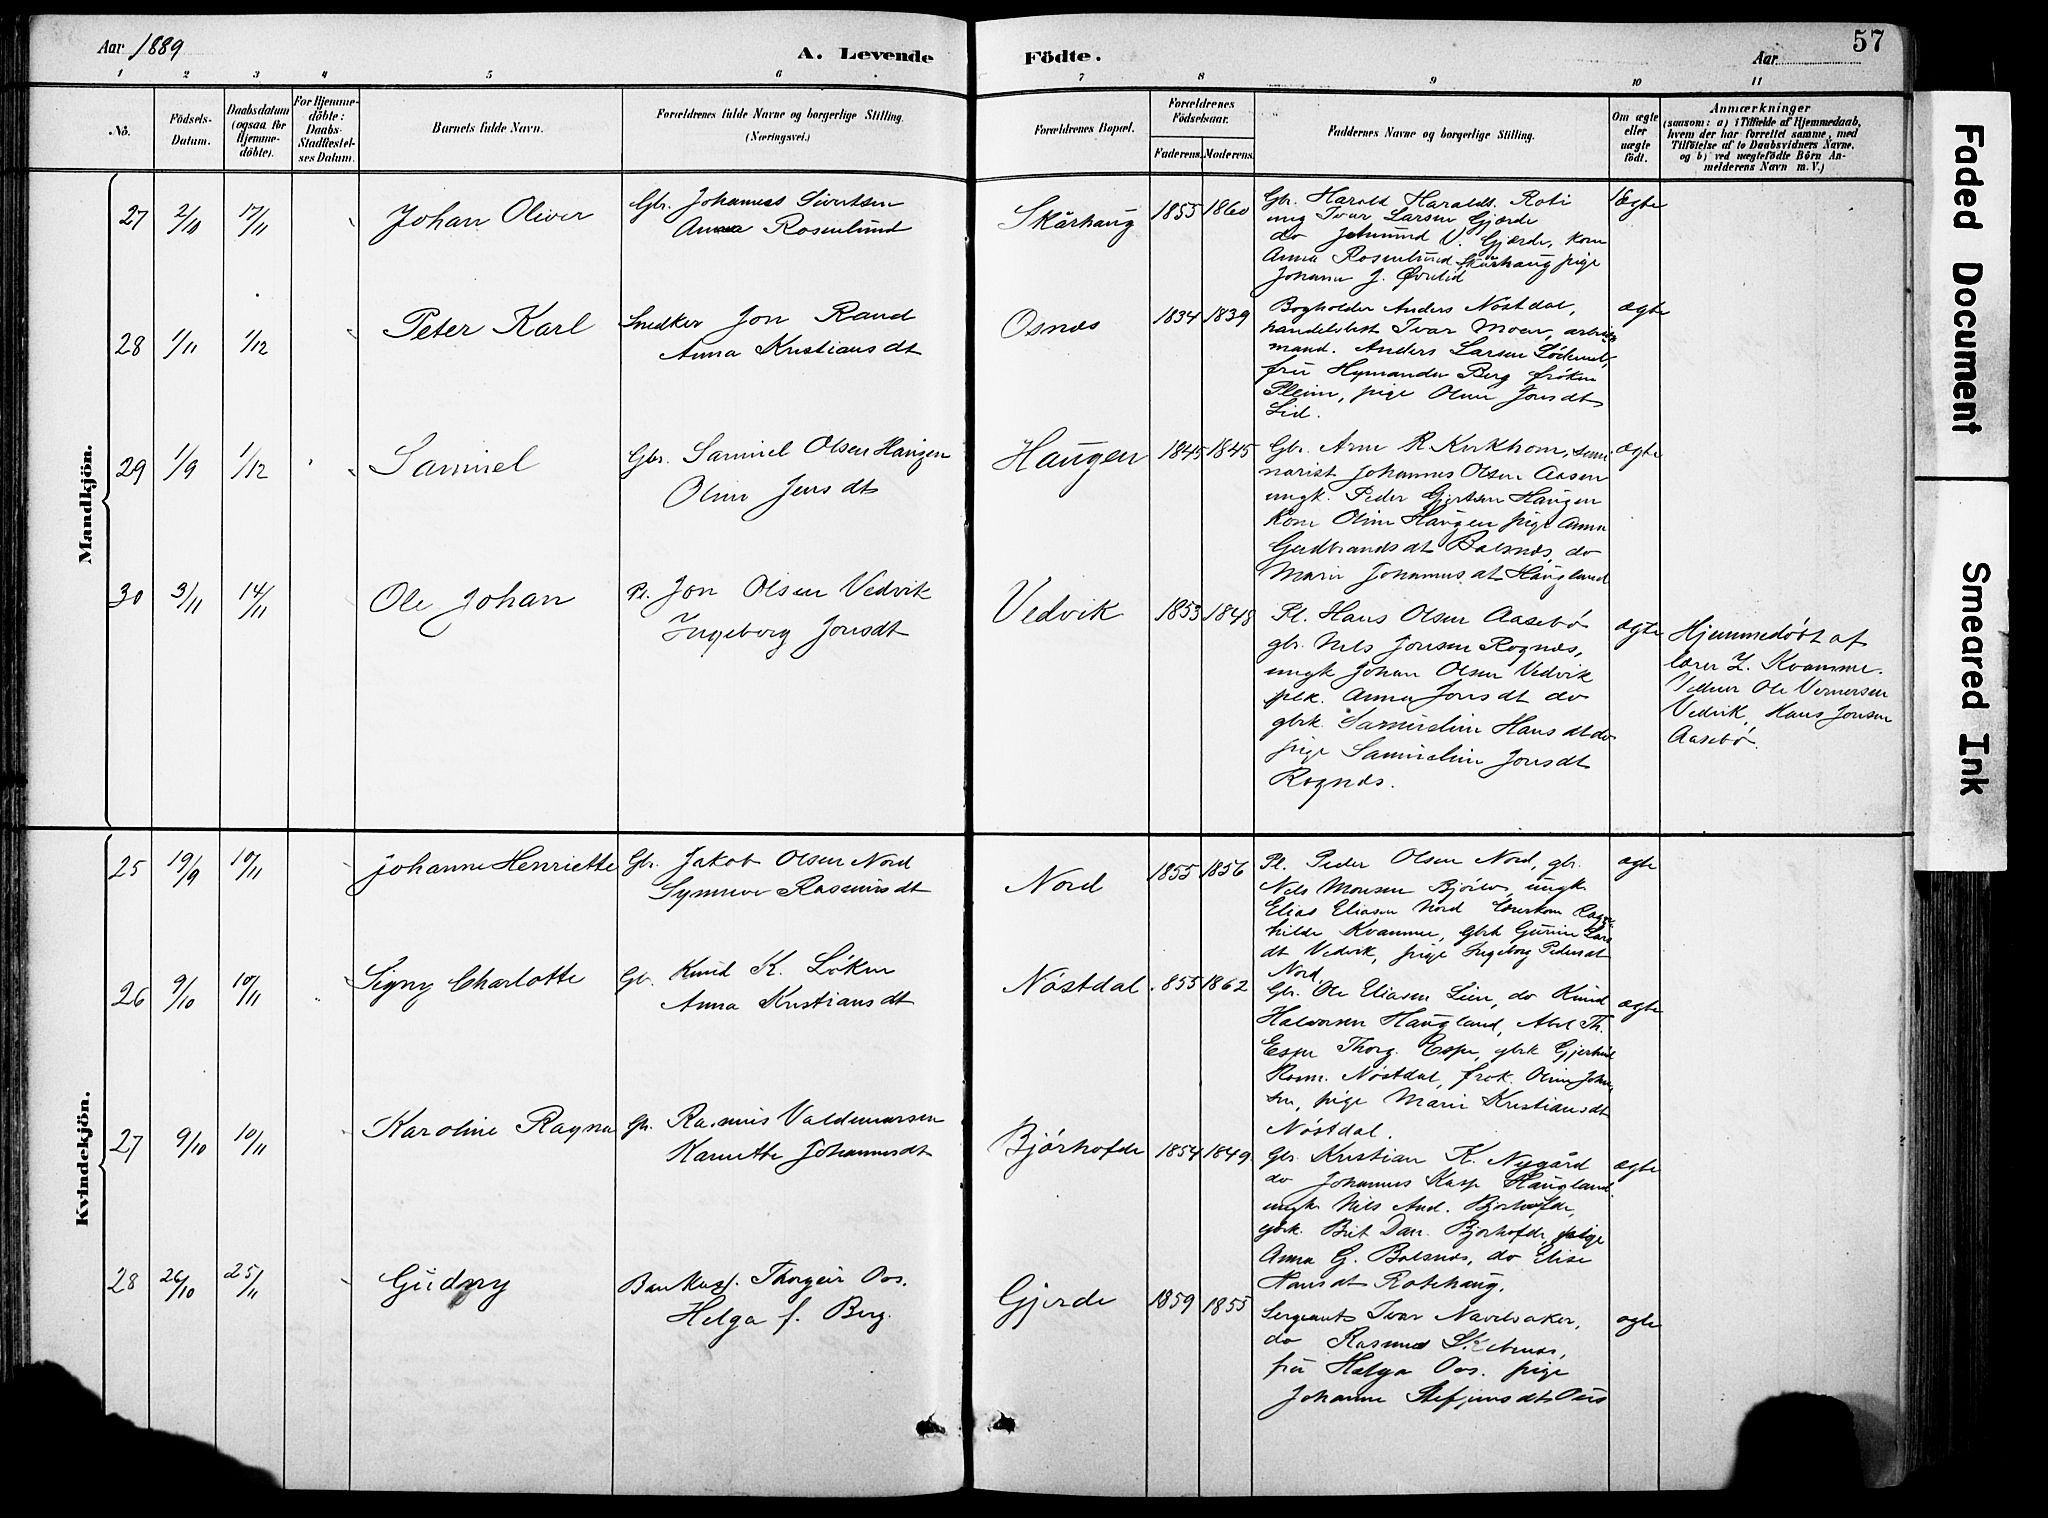 Aar 1889
A. Levende Födte.
Aar
57
1 2 3 4 5 6 7 8 9 10 11
No.
Födsels-Datum.
Daabsdatum (ogsaa for Hjemme-döbte).
For Hjemme-döbte: Daabs-Stadfæstel-ses Datum.
Barnets fulde Navn.
Forældrenes fulde Navne og borgerlige Stilling. (Næringsvei.)
Forældrenes Bopæl.
Forældrenes Födselsaar.
Faderens. Moderens.
Faddernes Navne og borgerlige Stilling.
Om ægte eller uægte födt.
Anmærkninger
(saasom: a) i Tilfælde af Hjemmedaab, hvem der har forrettet samme, med Tilföielse af to Daabsvidners Navne. og b) ved uægtefödte Börn An-melderens Navn m. V.)
Mandkjön.
27 2/10 17/11 Johan Oliver
Gbr. Johannes Sivertsen
Anna Rosenlund
Skårhaug 1855 1860
Gbr. Harald Haralds. Roti
ung Ivar Larsen Gjærde
do Jetmund V. Gjærde, kone
Anna Rosenlund Skårhaug pige
Johanne J. Øvrelid
Ægte
28 1/11 1/12 Peter Karl
Snedker Jon Rand
Anna Kristiansdt
Osnæs 1834 1839
Bogholder Anders Nøstdal,
handelsbest Ivar Moen, arbeids
mand. Anders Larsen
fru Berg frøken
pige Oline Jonsdt
Lid.
ægte
29 1/9 1/12 Samuel
Gbr. Samuel Olsen Haugen
Oline Jensdt
Haugen 1845 1845
Gbr. Arne R Kirkhorn, semi
narist Johannes Olsen Aasen
ungk. Peder Gjertsen Haugen
Kone Oline Haugen pige Anna
Gudbrandsdt Balsnæs, do
Marie Johannesdt Haugland
ægte
30 3/11 14/11 Ole Johan
Pl. Jon Olsen Vedvik
Ingeborg Jonsdt
Vedvik 1853 1848
Pl. Hans Olsen Aasebø
gbr. Nils Jonsen Rognæs,
ungk Johan Olsen Vedvik
plk. Anna Jonsdt do
gbrk. Samueline Hansdt do
pige Samueline Jonsdt
Rognæs.
ægte
Hjemmedøbt af
lærer Z. Kvamme.
Vidner Ole Vernersen
Vedvik, Hans Jonsen
Aasebø.
Kvindekjön.
25 19/9 10/11 Johanne Henriette
Gbr. Jakob Olsen Nord
Synneve Rasmusdt
Nord 1855 1856
Pl. Peder Olsen Nord, gbr.
Nils Monsen ungk
Elias Eliasen Nord Enerkone Ragn
hilde Kvamme, gbrk Gurine Lars
dt Vedvik, pige Ingeborg Pedersdt
Nord
ægte
26 9/10 10/11 Signy Charlotte
Gbr. Knud K. Løken
Anna Kristiansdt
Nøstdal 1855 1862
Gbr. Ole Eliasen Lien, do Knud
Halvorsen Haugland, Abel Th.
Espe Thorg. Espe, gbrk Gjertrud
Rasm. Nøstdal, frøk. Oline Johan
sen, pige Marie Kristiansdt
Nøstdal.
ægte
27 9/10 10/11 Karoline Ragna
Gbr. Rasmus Valdemarsen
Johannesdt
Bjørhofde 1854 1849
Gbr. Kristian K. Nygård
do Johannes Kasp Haugland.
ungk Nils And. Bjørhofde,
gbrk. Brit Dan. Bjørhofde, pige
Anna G. Balsnæs, do Elise
Hansdt Rotehaug.
ægte
28 26/10 25/11 Gudny
Bankkass. Thorgeir Oos.
Helga f. Berg.
Gjerde 1859 1855
Sergeants Ivar Navelsaker,
do Rasmus
fru Helga Oos. pige
Johanne
ægte
Faded Document
Smeared Ink